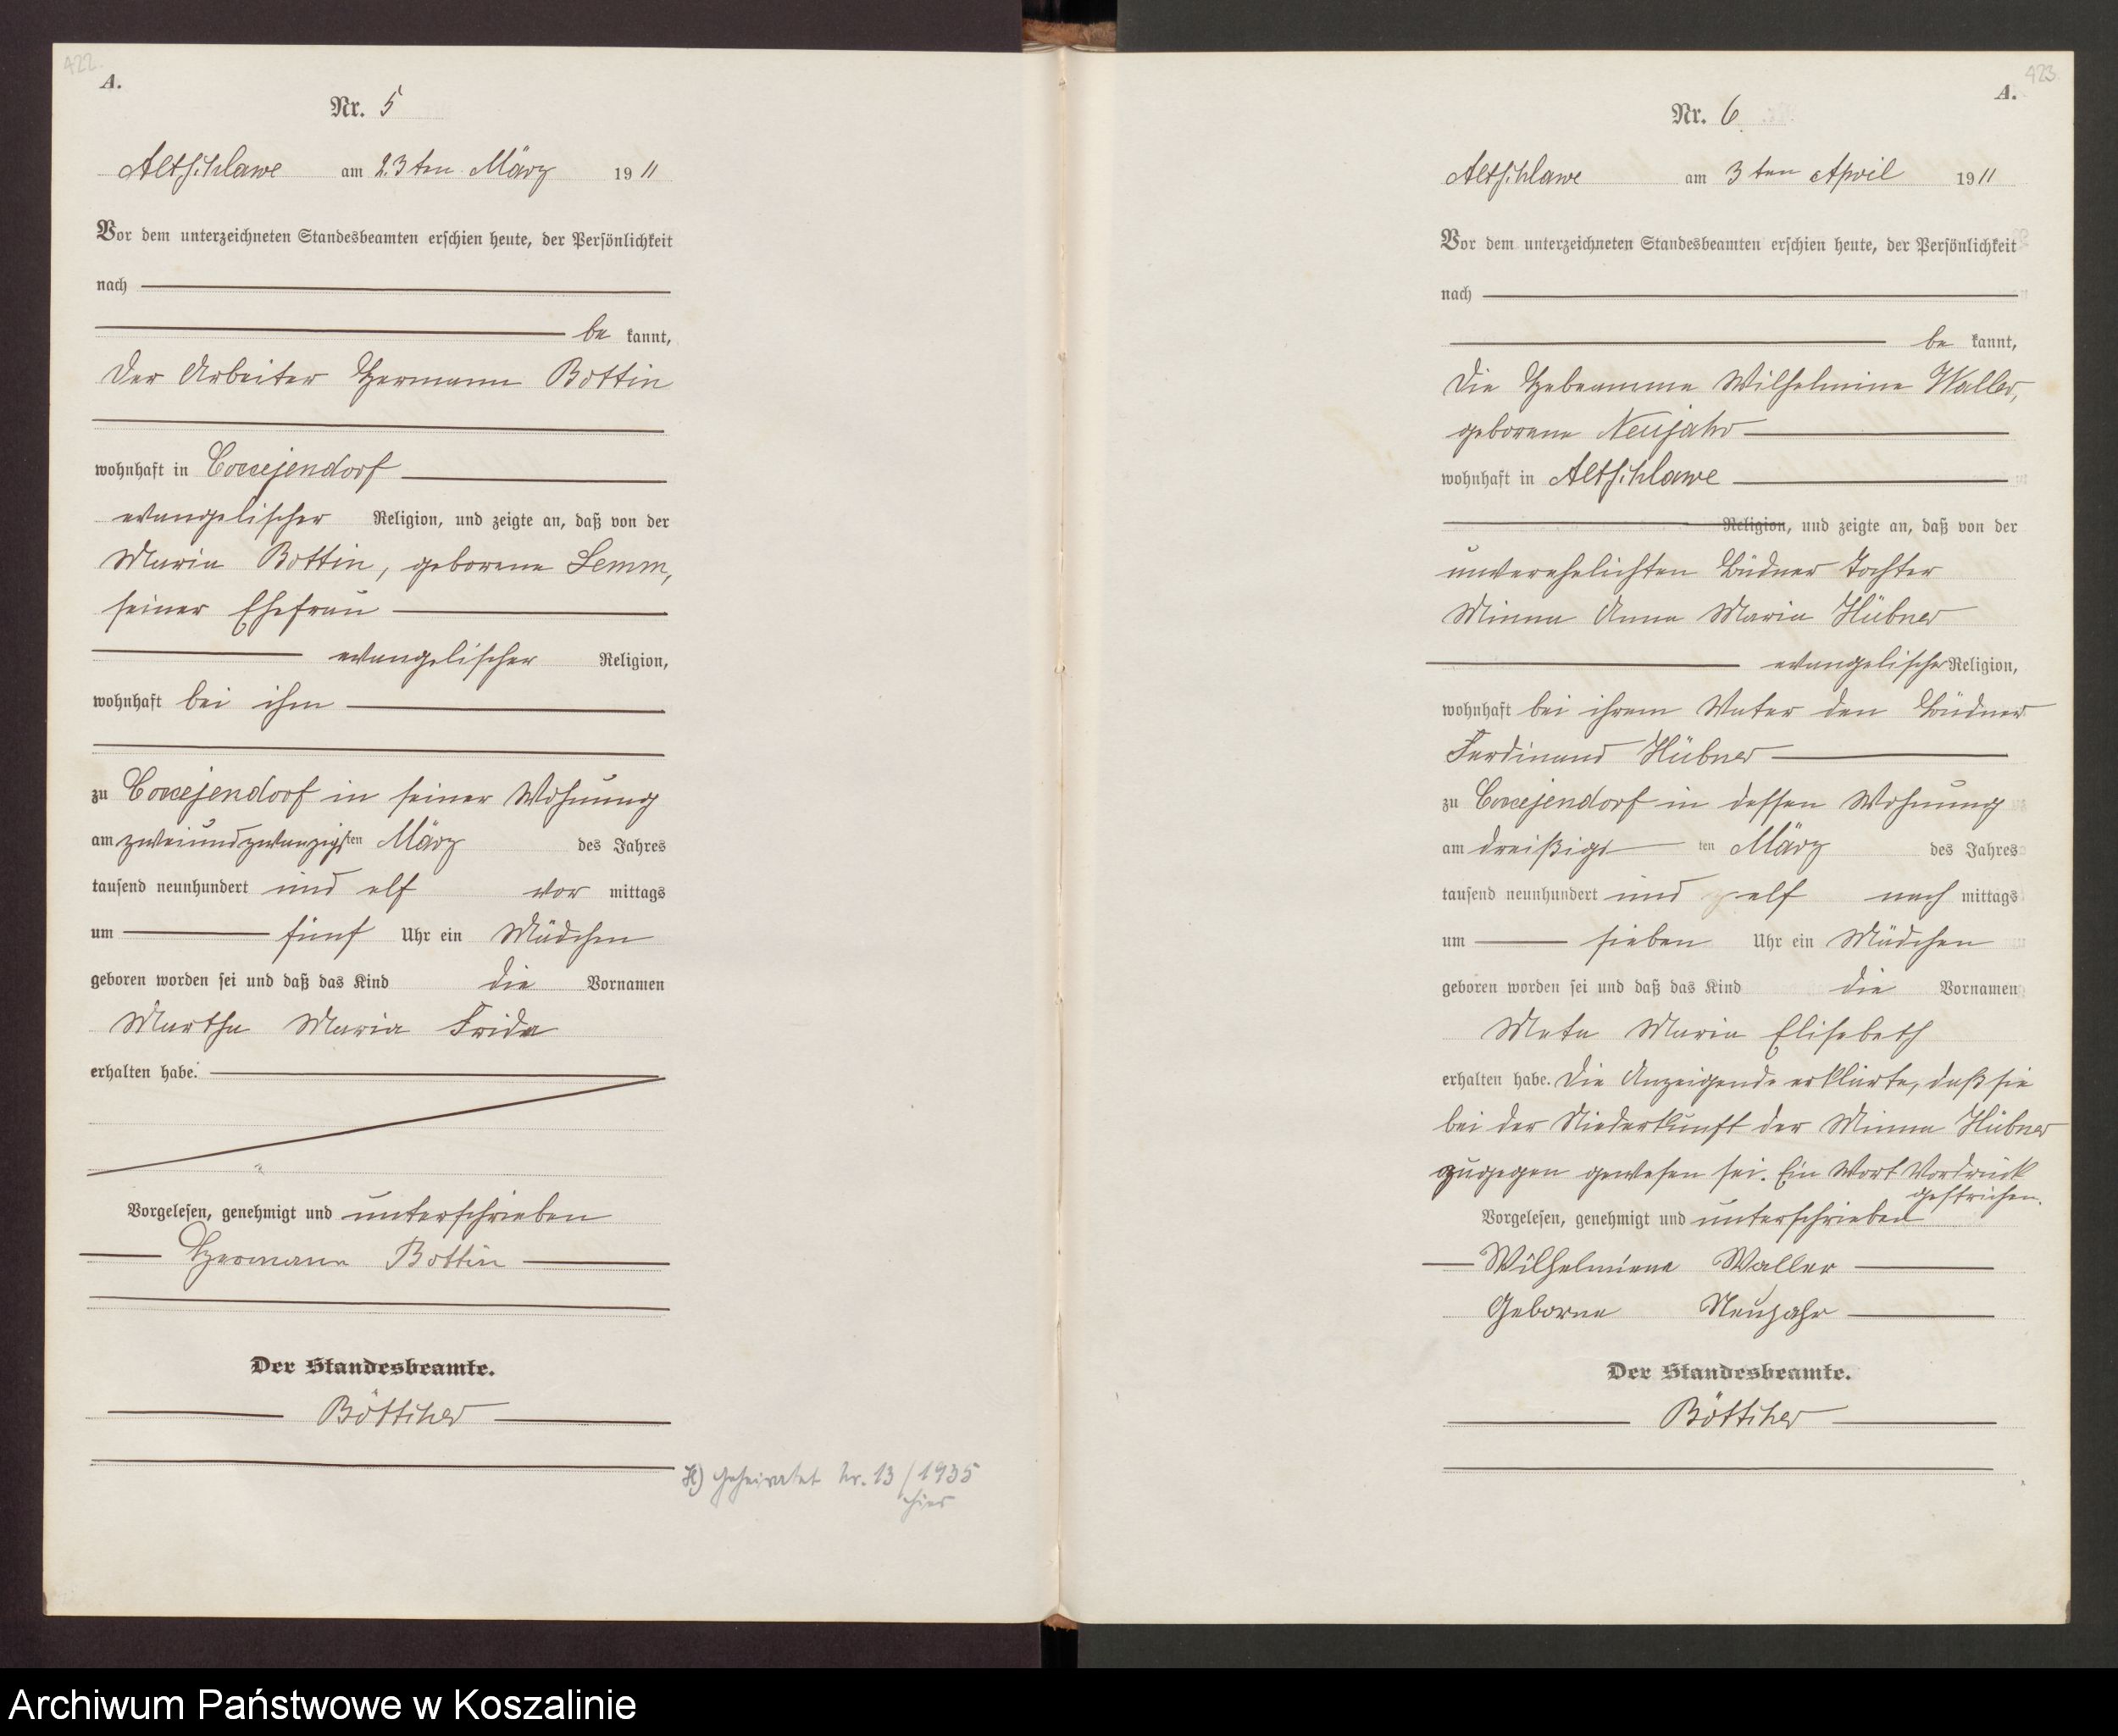 422.
A.
Nr. 5
Altschlawe am 23ten März 1911
Vor dem unterzeichneten Standesbeamten erschien heute, der Persönlichkeit
nach
be kannt,
der Arbeiter Hermann Bottin
wohnhaft in Coccejendorf
evangelischer Religion, und zeigte an, daß von der
Maria Bottin, geborene Lemm,
seiner Ehefrau
evangelischer Religion,
wohnhaft bei ihm
zu Coccejendorf in seiner Wohnung
am zweiundzwanzigsten März des Jahres
tausend neunhundert und elf vor mittags
um fünf Uhr ein Mädchen
geboren worden sei und daß das Kind die Vornamen
Martha Maria Frida
erhalten habe.
Vorgelesen, genehmigt und unterschrieben
Hermann Bottin
Der Standesbeamte.
Böttcher
H) Geheiratet Nr. 13/1935
hier
423.
A.
Nr. 6.
Altschlawe am 3ten April 1911
Vor dem unterzeichneten Standesbeamten erschien heute, der Persönlichkeit
nach
be kannt,
die Hebeamme Wilhelmine Waller,
geborene Neujahr
wohnhaft in Altschlawe
Religion, und zeigte an, daß von der
unverehelichten Büdner Tochter
Minna Anna Maria Hübner
evangelischer Religion,
wohnhaft bei ihrem Vater den Büdner
Ferdinand Hübner
zu Coccejendorf in dessen Wohnung
am dreißigs ten März des Jahres
tausend neunhundert und elf nach mittags
um sieben Uhr ein Mädchen
geboren worden sei und daß das Kind die Vornamen
Meta Maria Elisebeth
erhalten habe. Die Anzeigende erklärte, daß sie
bei der Niederkunft der Minna Hübner
zugegen gewesen sei. Ein Wort Vordruck
gestrichen.
Vorgelesen, genehmigt und unterschrieben
Wilhelmiene Waller
Geborne Neujahr
Der Standesbeamte.
Böttcher
Archiwum Państwowe w Koszalinie